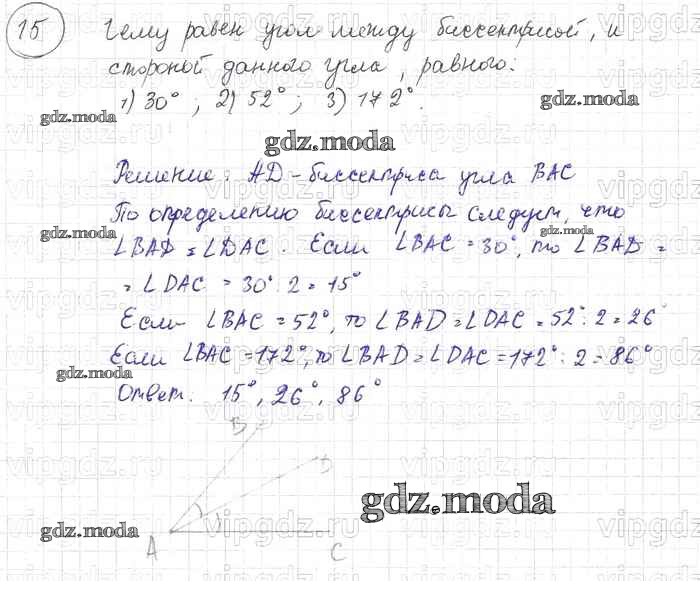 15 Чему равен угол между биссектрисой, и
стороной данного угла, равного:
1) 30° ; 2) 52° ; 3) 172°.
gdz.moda
gdz.moda
gdz.moda
Решение: AD - биссектриса угла BAC
По определению биссектрисы следует, что
gdz.moda
gdz.moda
∠BAD = ∠DAC. Если ∠BAC = 30°, то ∠BAD =
= ∠DAC = 30° : 2 = 15°
Если ∠BAC = 52°, то ∠BAD = ∠DAC = 52° : 2 = 26°
Если ∠BAC = 172°, то ∠BAD = ∠DAC = 172° : 2 = 86°
gdz.moda
Ответ. 15°, 26°, 86°
B
D
gdz.moda
gdz.moda
A
C
vipgdz.ru